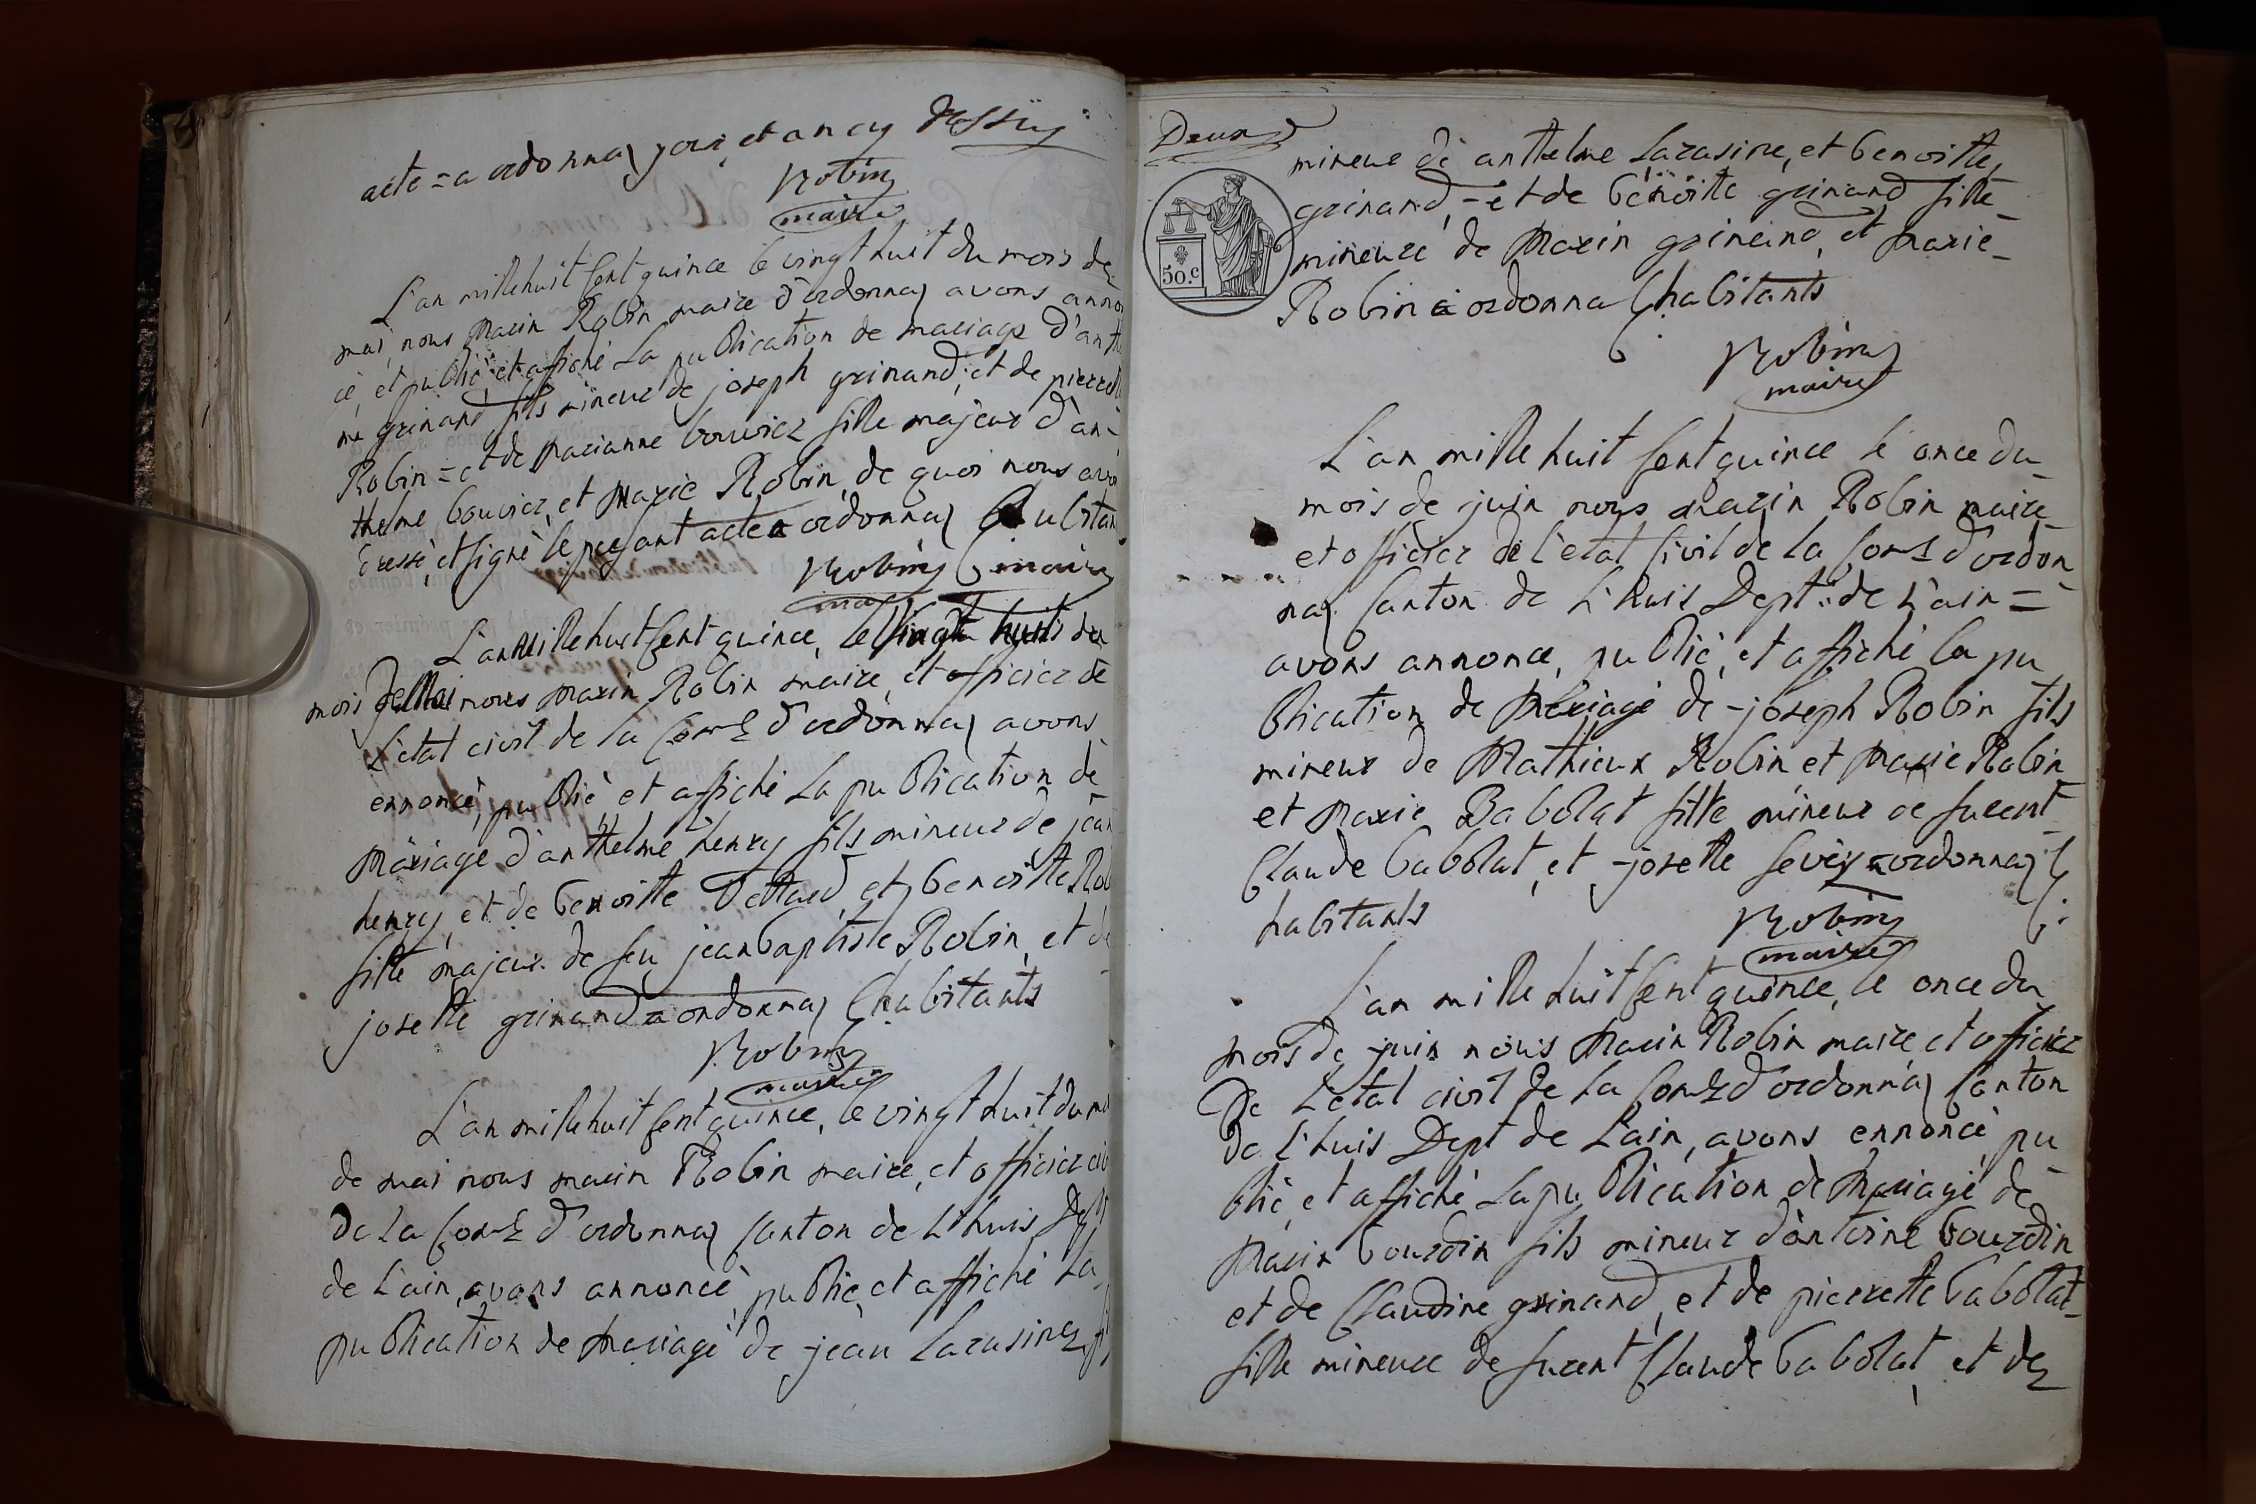 acte = a ordonnaz jour et an cy dessus
Robin
maire
L'an mille huit cent quince le vingt huit du mois de
mai, nous Marin Robin maire d'ordonnaz avons annon
cé, et publié, et affiché La publication de mariage d'anthel
me grinand fils mineur de joseph grinand, et de pierrette
Robin = et de marianne bouvier fille majeur d'an-
thelme bouvier, et Marie Robin, de quoi nous avons
dressé, et signé le present acte a ordonnaz
Robin maire
L'an mille huit cent quince, le vingt huit du
mois de Mai nous Marin Robin maire, et officier de
L'etat civil de la Com.e d'ordonnaz avons
ennoncé, publié, et affiché La publication de
Mariage d'anthelme henry fils mineur de jean
henry, et de benoitte et benoitte Rob
fille majeur de feu jean baptiste Robin, et de
josette grinand a ordonnaz habitants
Robin
maire
L'an mille huit cent quince, le vingt huit du moi
de mai nous marin Robin maire, et officier civ
De la Com.e d'ordonnaz Canton de Lhuis Dept
de L'ain, avons annoncé publié, et affiché La
publication de Mariage de jean Larasine
Deux
mineur de anthelme Larasine, et benoitte
grinand, = et de benoitte grinand fille
mineure de Marin grineind, et marie
Robin a ordonna habitants
50.c
Robin
maire
L'an mille huit Cent quince le once du
mois de juin nous Marin Robin maire
et officier de l'etat Civil de la Com.e d'ordon
naz Canton de L'huis Dept. de L'ain =
avons annonce, publié, et affiché la pu
blication de Mariage de joseph Robin fils
mineur de Mathieux Robin et Marie Robin
et Marie Babolat fille mineur de furent
Claude babolat, et josette a ordonnaz
habitants
Robin
maire
L'an mille huit Cent quince, le once du
mois de juin nous Marin Robin maire et officier
De L'etat civil de La Com.e d'ordonnaz Canton
De L'huis Dept de L'ain, avons ennoncé pu
blié, et affiché La publication de Mariage de
Marin bourdin fils mineur d'antoine bourdin
et de Claudine grinand, et de pierrette babolat
fille mineure de furent Claude babolat, et de